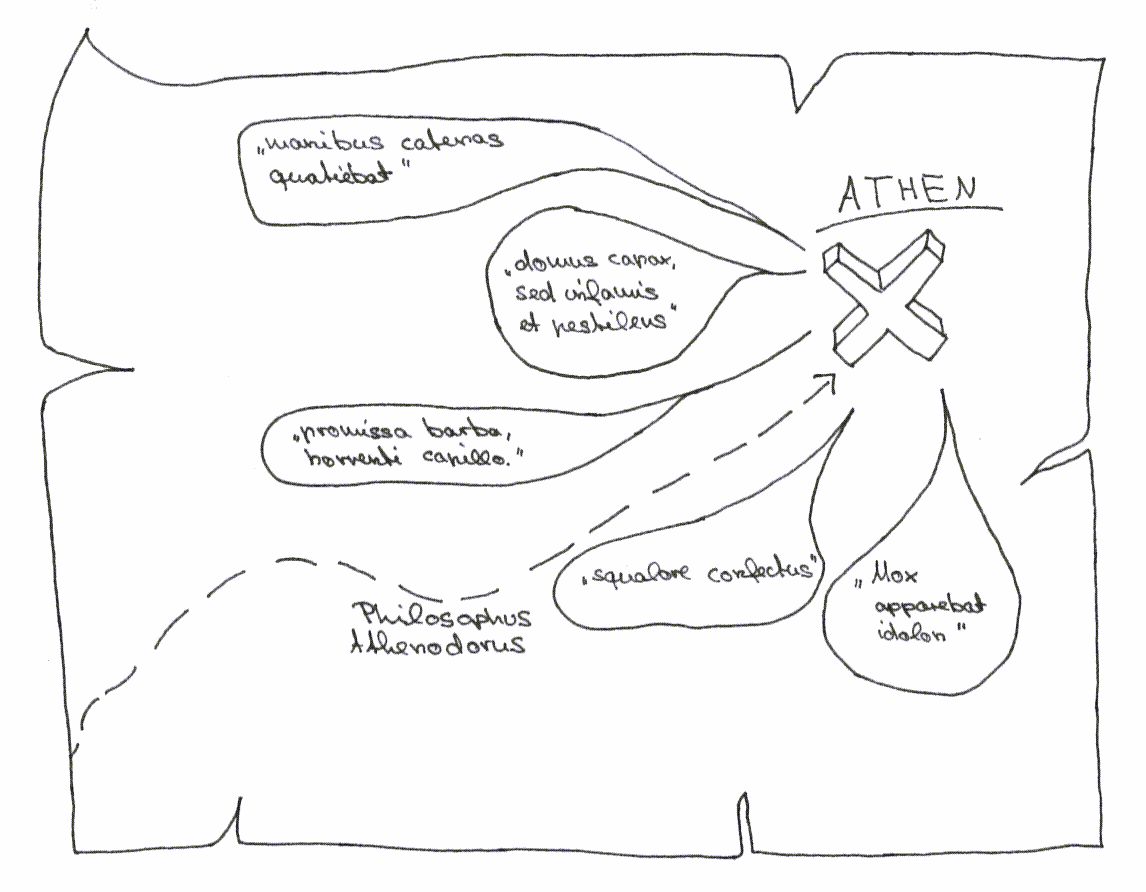 „manibus catenas
quatiebat"
ATHEN
„domus capax,
sed infamis
et pestilens"
„promissa barba,
horrenti capillo."
„squalore confectus"
„Mox
apparebat
idolon"
Philosophus
Athenodorus